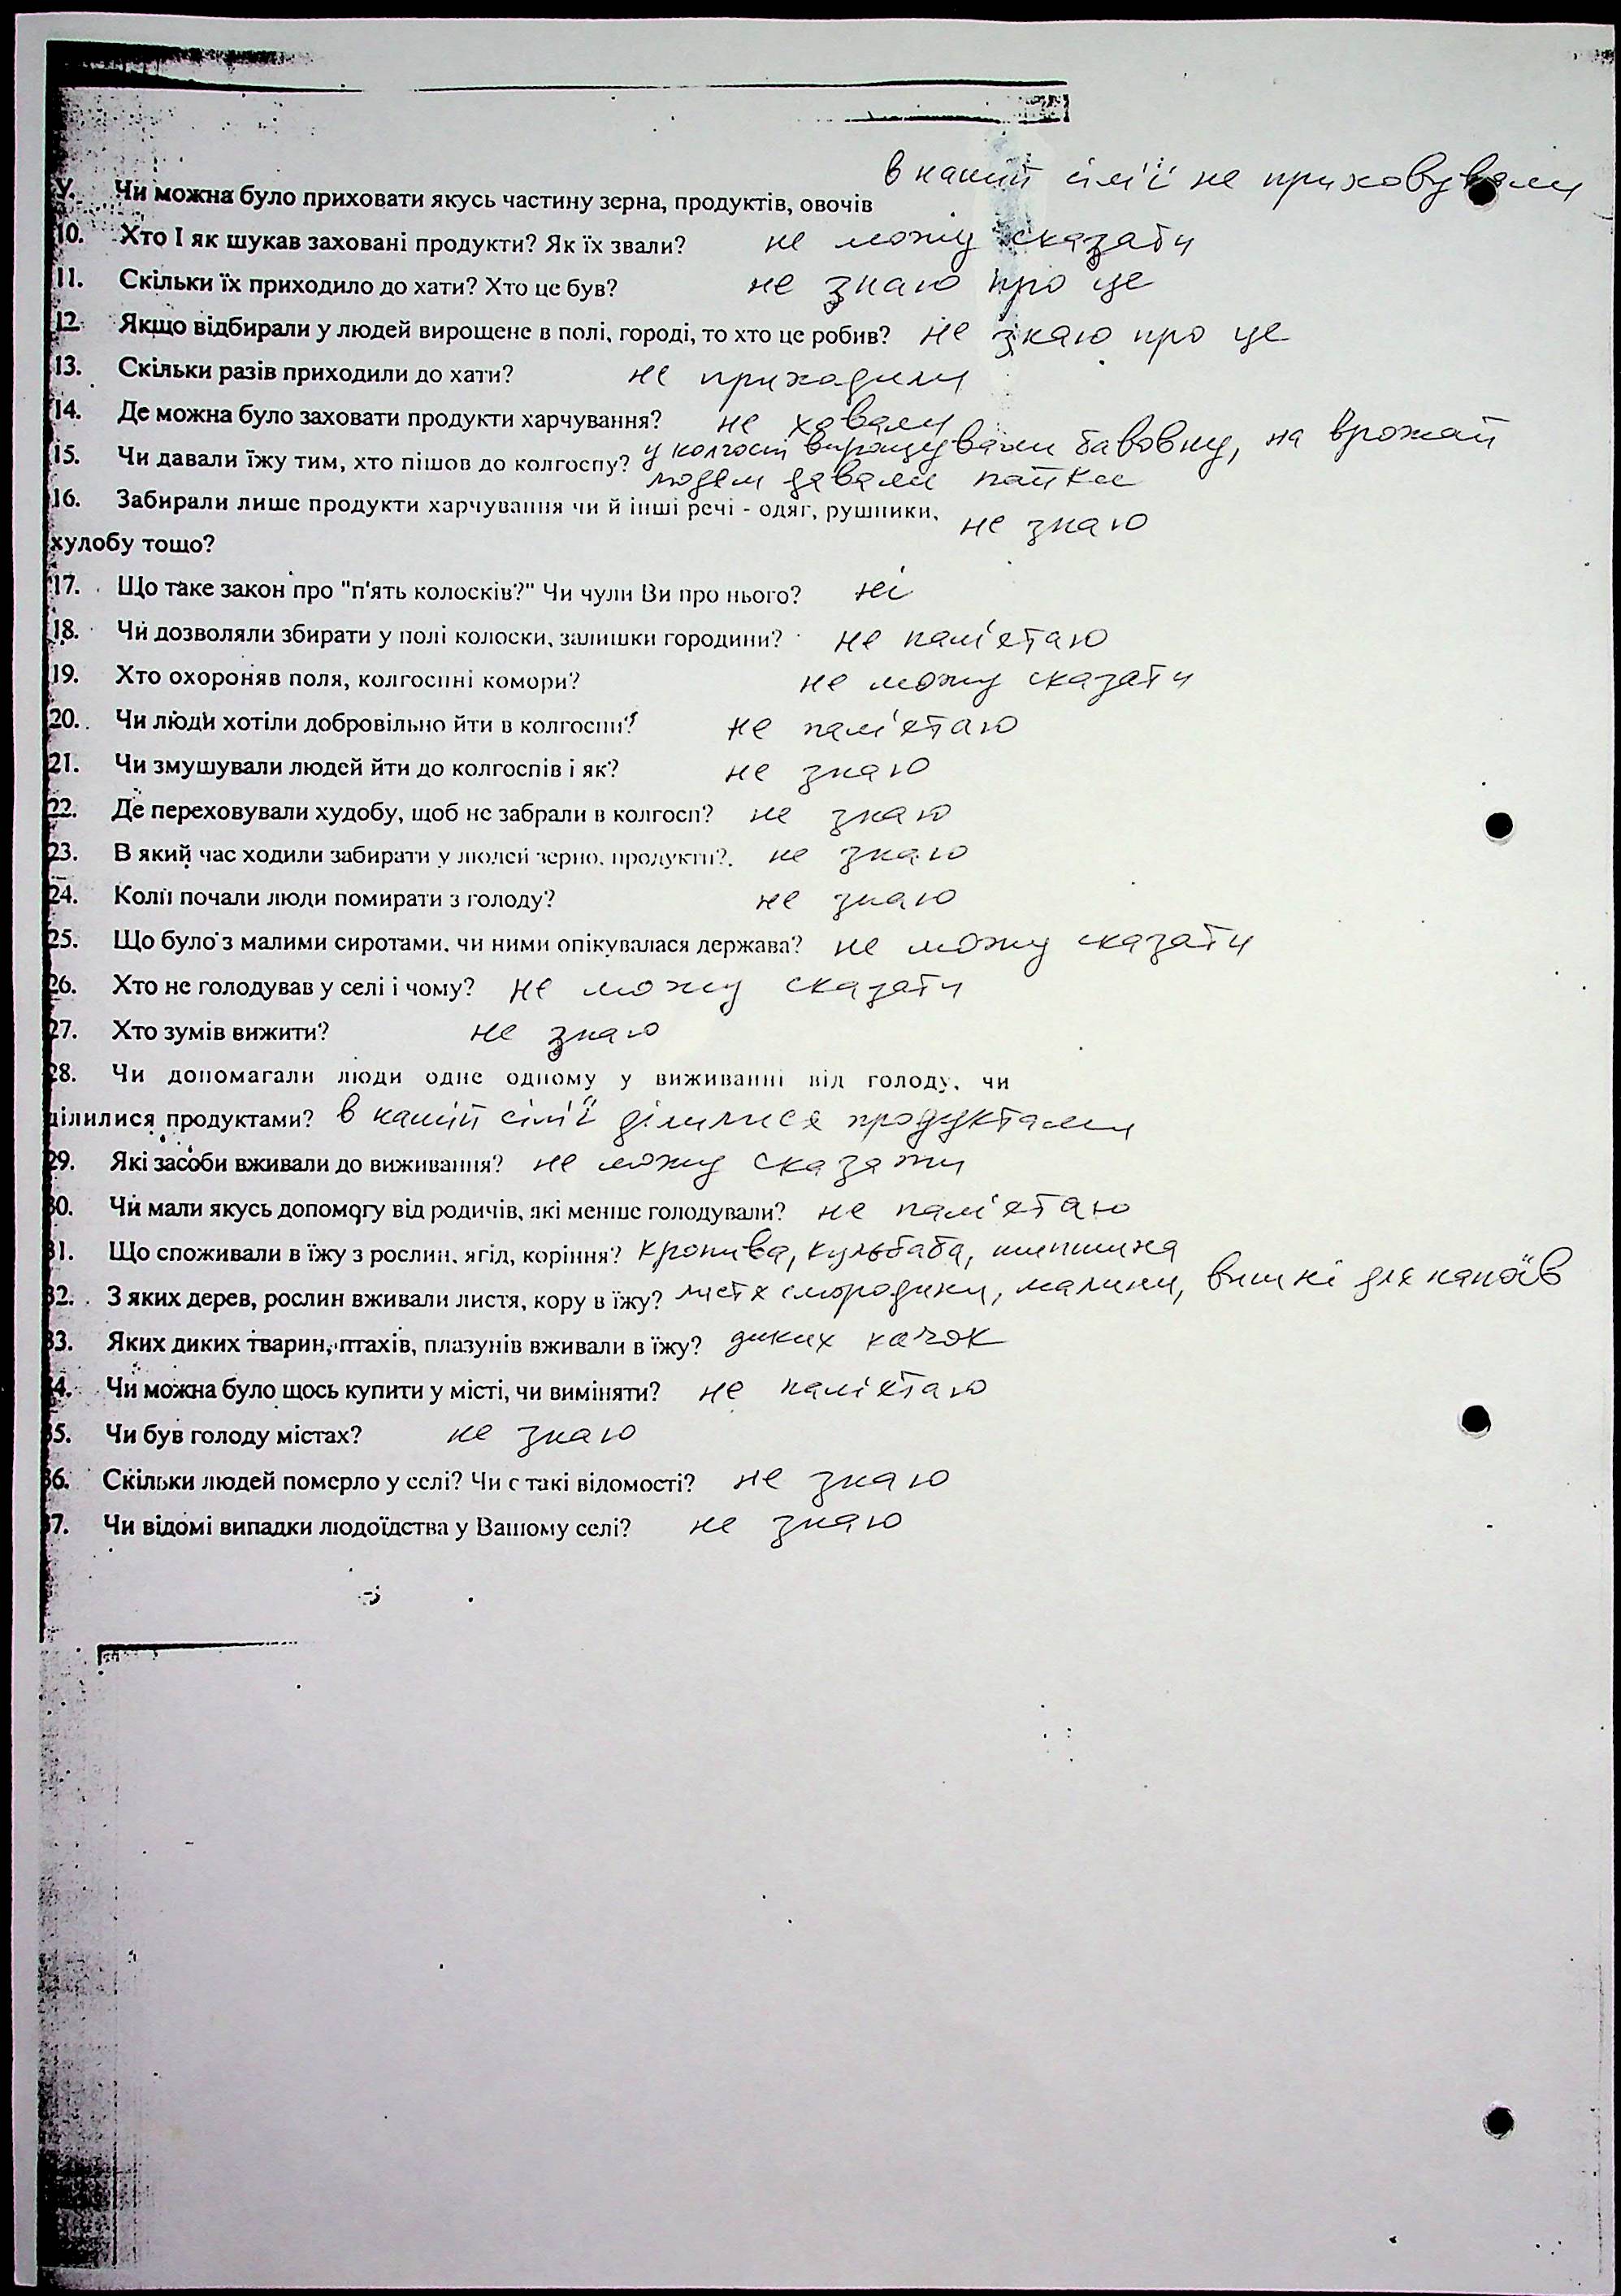 в нашій сім'ї не приховували
9. Чи можна було приховати якусь частину зерна, продуктів, овочів
10. Хто І як шукав заховані продукти? Як їх звали? не можу сказати
11. Скільки їх приходило до хати? Хто це був? не знаю про це
12. Якщо відбирали у людей вирощене в полі, городі, то хто це робив? не знаю про це
13. Скільки разів приходили до хати? не приходили
14. Де можна було заховати продукти харчування? не ховали
15. Чи давали їжу тим, хто пішов до колгоспу? у колгоспі вирощували бавовну, на врожай
людям давали пайки
16. Забирали лише продукти харчування чи й інші речі - одяг, рушники, не знаю
худобу тощо?
17. Що таке закон про "п'ять колосків?" Чи чули Ви про нього? ні
18. Чи дозволяли збирати у полі колоски, залишки городини? не пам'ятаю
19. Хто охороняв поля, колгоспні комори? не можу сказати
20. Чи люди хотіли добровільно йти в колгоспи? не пам'ятаю
21. Чи змушували людей йти до колгоспів і як? не знаю
22. Де переховували худобу, щоб не забрали в колгосп? не знаю
23. В який час ходили забирати у людей зерно, продукти?. не знаю
24. Коли почали люди помирати з голоду? не знаю
25. Що було з малими сиротами, чи ними опікувалася держава? не можу сказати
26. Хто не голодував у селі і чому? не можу сказати
27. Хто зумів вижити? не знаю
28. Чи допомагали люди одне одному у виживанні від голоду, чи
ділилися продуктами? в нашій сім'ї ділилися продуктами
29. Які засоби вживали до виживання? не можу сказати
30. Чи мали якусь допомогу від родичів, які менше голодували? не пам'ятаю
31. Що споживали в їжу з рослин, ягід, коріння? кропива, кульбаба, шипшина
32. З яких дерев, рослин вживали листя, кору в їжу? листя смородини, малини, вишні для напоїв
33. Яких диких тварин, птахів, плазунів вживали в їжу? диких качок
34. Чи можна було щось купити у місті, чи виміняти? не пам'ятаю
35. Чи був голоду містах? не знаю
36. Скільки людей померло у селі? Чи є такі відомості? не знаю
37. Чи відомі випадки людоїдства у Вашому селі? не знаю